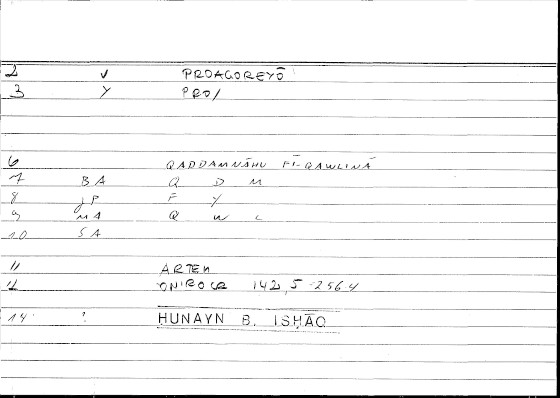 2 V PROAGOREYŌ
3 Y PRO/
6 QADDAMNĀHU FĪ-QAWLINĀ
7 BA Q D M
8 JP F Y
9 MA Q W L
10 SA
11 ARTEM
12 ONIROCR 142,5-256,4
14 ? HUNAYN B. ISḤĀQ